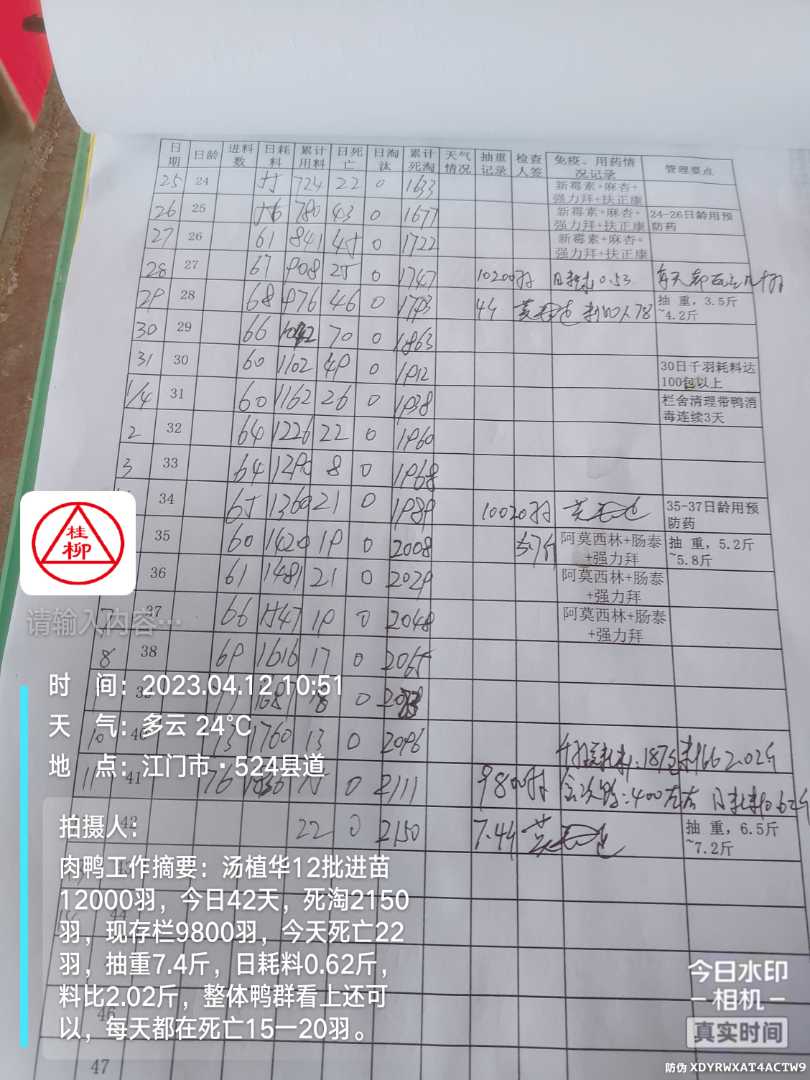 日期 日龄 进料数 日耗料 累计用料 日死亡 日淘汰 累计死淘 天气情况 抽重记录 检查人签 免疫、用药情况记录 管理要点
25 24 55 724 22 0 1633 新霉素+麻杏+强力拜+扶正康
26 25 56 780 43 0 1677 新霉素+麻杏+强力拜+扶正康 24-26日龄用预防药
27 26 61 841 45 0 1722 新霉素+麻杏+强力拜+扶正康
28 27 67 908 25 0 1747 10200羽 日耗料0.53
29 28 68 976 46 0 1793 44 抽 重,3.5斤~4.2斤
30 29 66 1042 70 0 1863
31 30 60 1102 49 0 1912 30日千羽耗料达100包以上
1/4 31 60 1162 26 0 1938 栏舍清理带鸭消毒连续3天
2 32 64 1226 22 0 1960
3 33 64 1290 8 0 1968
34 65 1360 21 0 1989 10020羽 35-37日龄用预防药
35 60 1420 19 0 2008 5.7斤 阿莫西林+肠泰+强力拜 抽 重,5.2斤~5.8斤
36 61 1481 21 0 2029 阿莫西林+肠泰+强力拜
7 37 66 1547 19 0 2048 阿莫西林+肠泰+强力拜
8 38 69 1616 17 0 2065
39 71 1687 18 0
10 40 73 1760 13 0 2096 2.02斤
11 41 76 15 0 2111 9800羽 400左右 日耗料0.62斤
42 22 0 2150 7.44 抽 重,6.5斤~7.2斤
44
46
47
桂
柳
请输入内容…
时 间:2023.04.12 10:51
天 气:多云 24℃
地 点:江门市·524县道
拍摄人:
肉鸭工作摘要:汤植华12批进苗
12000羽,今日42天,死淘2150
羽,现存栏9800羽,今天死亡22
羽,抽重7.4斤,日耗料0.62斤,
料比2.02斤,整体鸭群看上还可
以,每天都在死亡15一20羽。
今日水印
相机
真实时间
防伪 XDYRWXAT4ACTW9